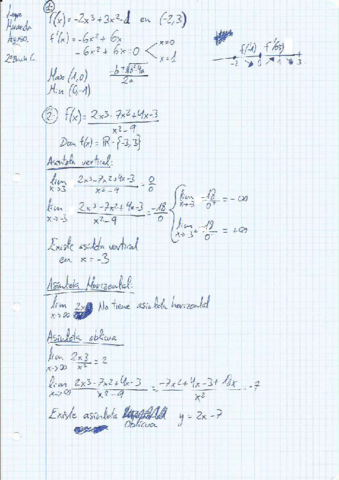 1.
f(x) = -2x³ + 3x² - 1 en (-2,3)
f'(x) = -6x² + 6x
-6x² + 6x = 0 x=0
x=1
Max (1,0)
Min (0,-1)
-2 f'(-1) 1 f'(2) 3
2ºBach C
2. f(x) = 2x³ - 7x² + 4x - 3
x² - 9
Dom f(x) = ℝ - {-3, 3}
Asíntota vertical:
lim x→3 2x³ - 7x² + 4x - 3 / x² - 9 = 0/0
lim x→-3 2x³ - 7x² + 4x - 3 / x² - 9 = -18/0
lim x→-3 -18/0⁺ = -∞
lim x→-3⁺ -18/0⁻ = +∞
Existe asíntota vertical
en x = -3
Asíntota Horizontal:
lim x→∞ No tiene asíntota horizontal
Asíntota oblicua
lim x→∞ 2x³/x³ = 2
lim x→∞ 2x³ - 7x² + 4x - 3 / x² - 9 = -7x² + 4x - 3 + 18x / x² = -7
Existe asíntota oblicua y = 2x - 7